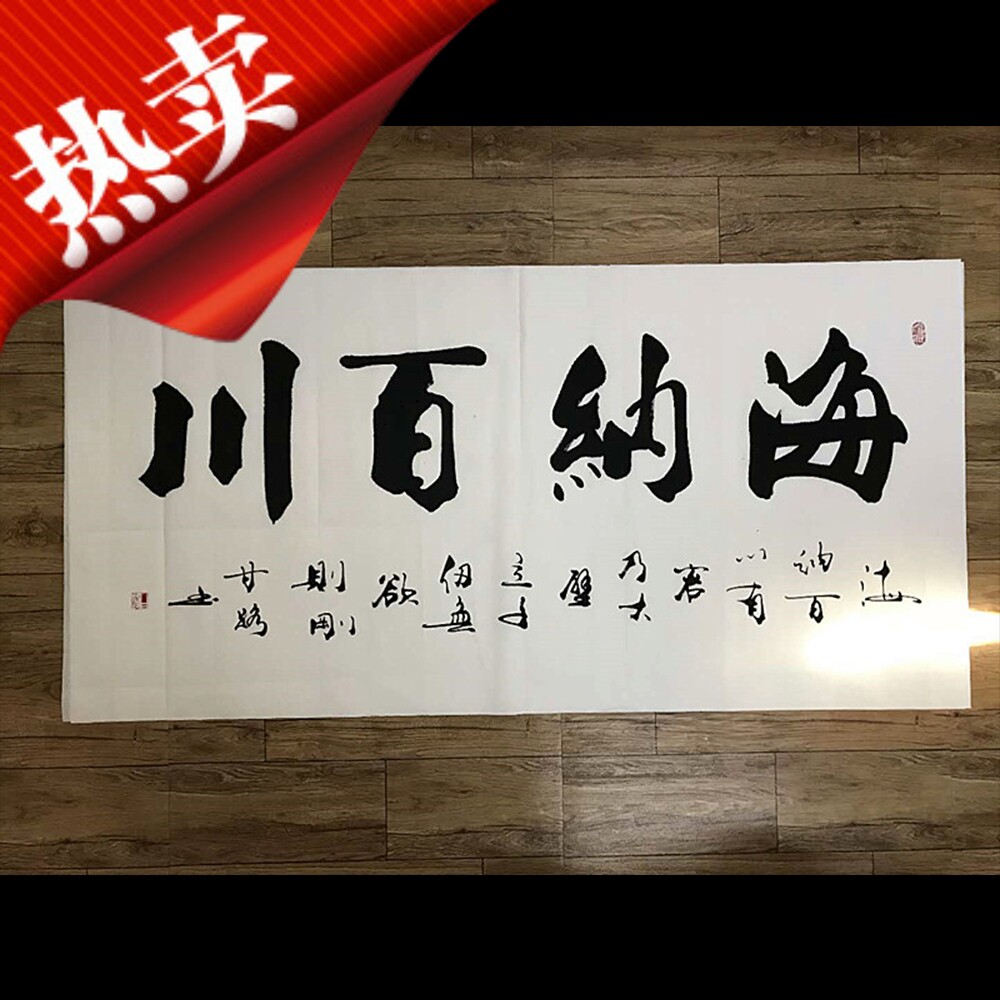 热卖
海納百川
海納百川有容乃大壁立千仞無欲則剛
甘
书